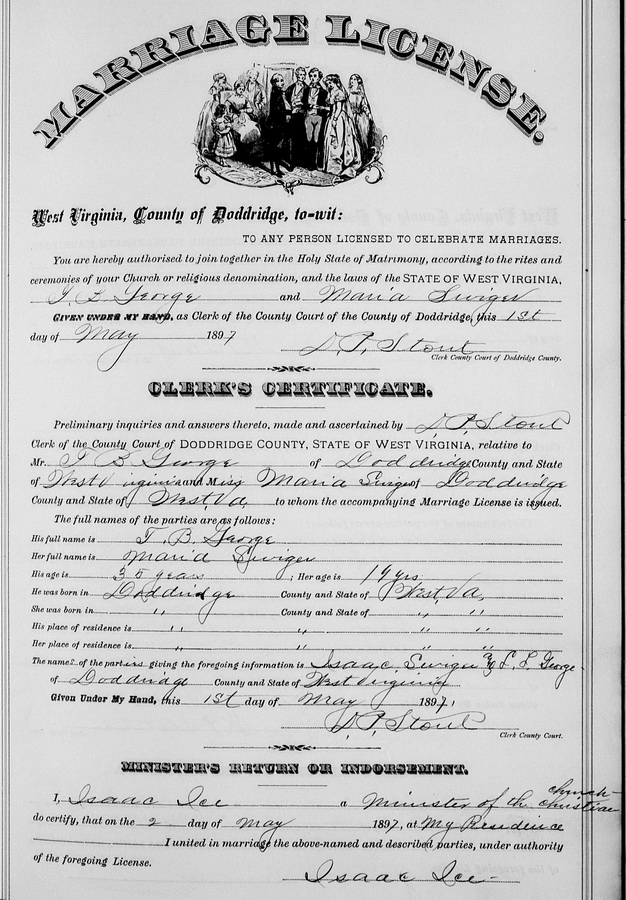 MARRIAGE LICENSE.
West Virginia, County of Doddridge, to-wit:
TO ANY PERSON LICENSED TO CELEBRATE MARRIAGES.
You are hereby authorised to join together in the Holy State of Matrimony, according to the rites and
ceremonies of your Church or religious denomination, and the laws of the STATE OF WEST VIRGINIA,
T. B. George and Maria Swiger
GIVEN UNDER MY HAND, as Clerk of the County Court of the County of Doddridge, this 1st
day of May 1897
D. P. Stout
Clerk County Court of Doddridge County.
CLERK'S CERTIFICATE.
Preliminary inquiries and answers thereto, made and ascertained by D. P. Stout
Clerk of the County Court of DODDRIDGE COUNTY, STATE OF WEST VIRGINIA, relative to
Mr. T B George of Doddridge County and State
of West Virginia and Miss Maria Swiger of Doddridge
County and State of West, Va, to whom the accompanying Marriage License is issued.
The full names of the parties are as follows:
His full name is T. B. George
Her full name is Maria Swiger
His age is 35 years ; Her age is 19 yrs.
He was born in Doddridge County and State of West, Va,
She was born in " County and State of " "
His place of residence is " " " "
Her place of residence is " " " "
The names of the parties giving the foregoing information is Isaac Swiger & L. L. George
of Doddridge County and State of West Virginia
Given Under My Hand, this 1st day of May 1897,
D. P. Stout
Clerk County Court.
MINISTER'S RETURN OR INDORSEMENT.
I, Isaac Ice a Minister of the Christian church
do certify, that on the 2 day of May 1897, at My Residence
I united in marriage the above-named and described parties, under authority
of the foregoing License.
Isaac Ice